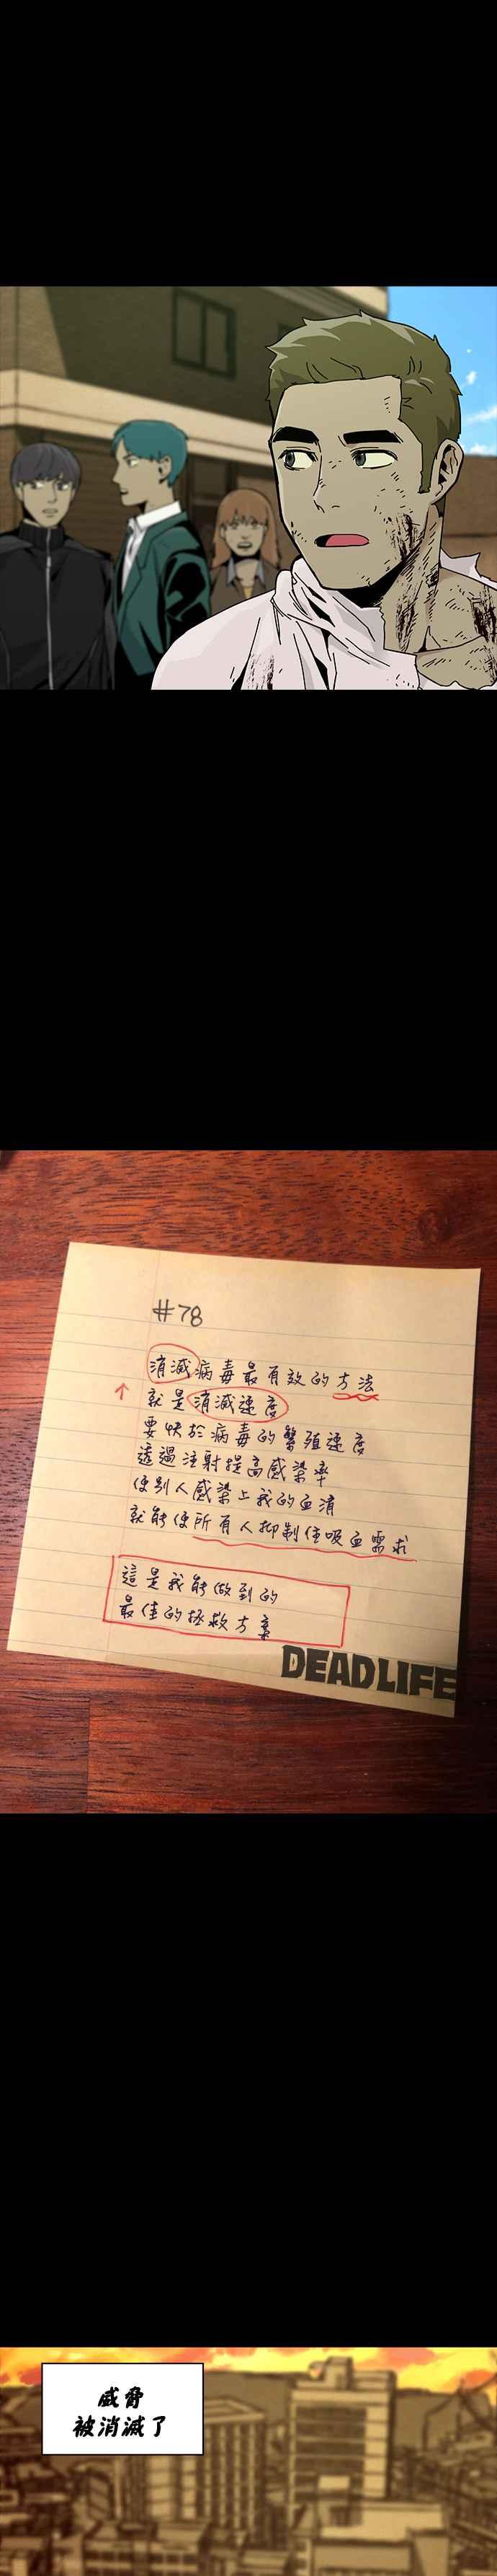 #78
消滅病毒最有效的方法
就是消滅速度
要快於病毒的繁殖速度
透過注射提高感染率
使別人感染上我的血清
就能使所有人抑制住吸血需求
這是我能做到的
最佳的拯救方案
DEADLIFE
威脅
被消滅了